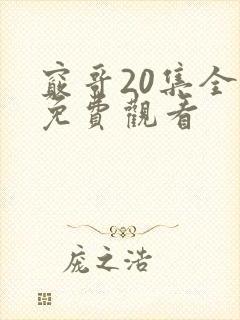 窮哥20集全
免費觀看
庞之浩